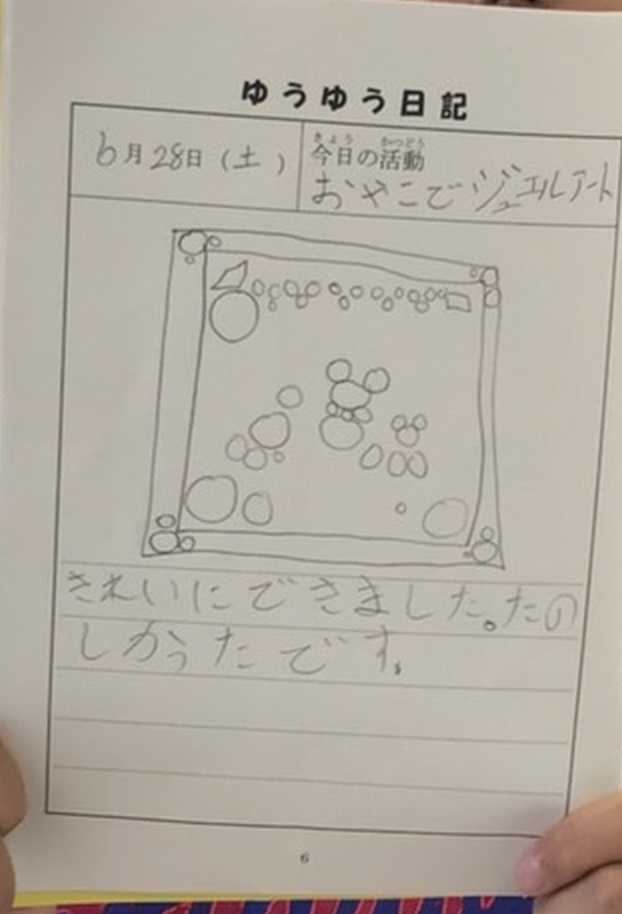 ゆうゆう日記
6月28日(土)
きょう かつどう
今日の活動
おやこでジュエルアート
きれいにできました。たの
しかったです。
6